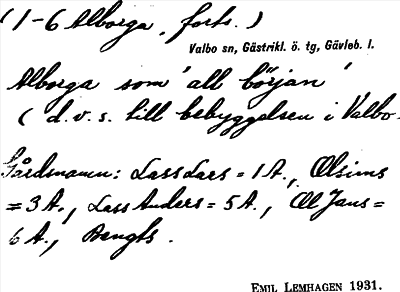 (1-6 Alborga, forts.)
Valbo sn, Gästrikl. ö. tg, Gävleb. l.
Alborga som 'all början'
(d.v.s. till bebyggelsen i Valbo.
Gårdsnamn: LassLars = 1A., Olsims
= 3A., LassAnders = 5A., OlJans =
6A., Bengts.
EMIL LEMHAGEN 1931.